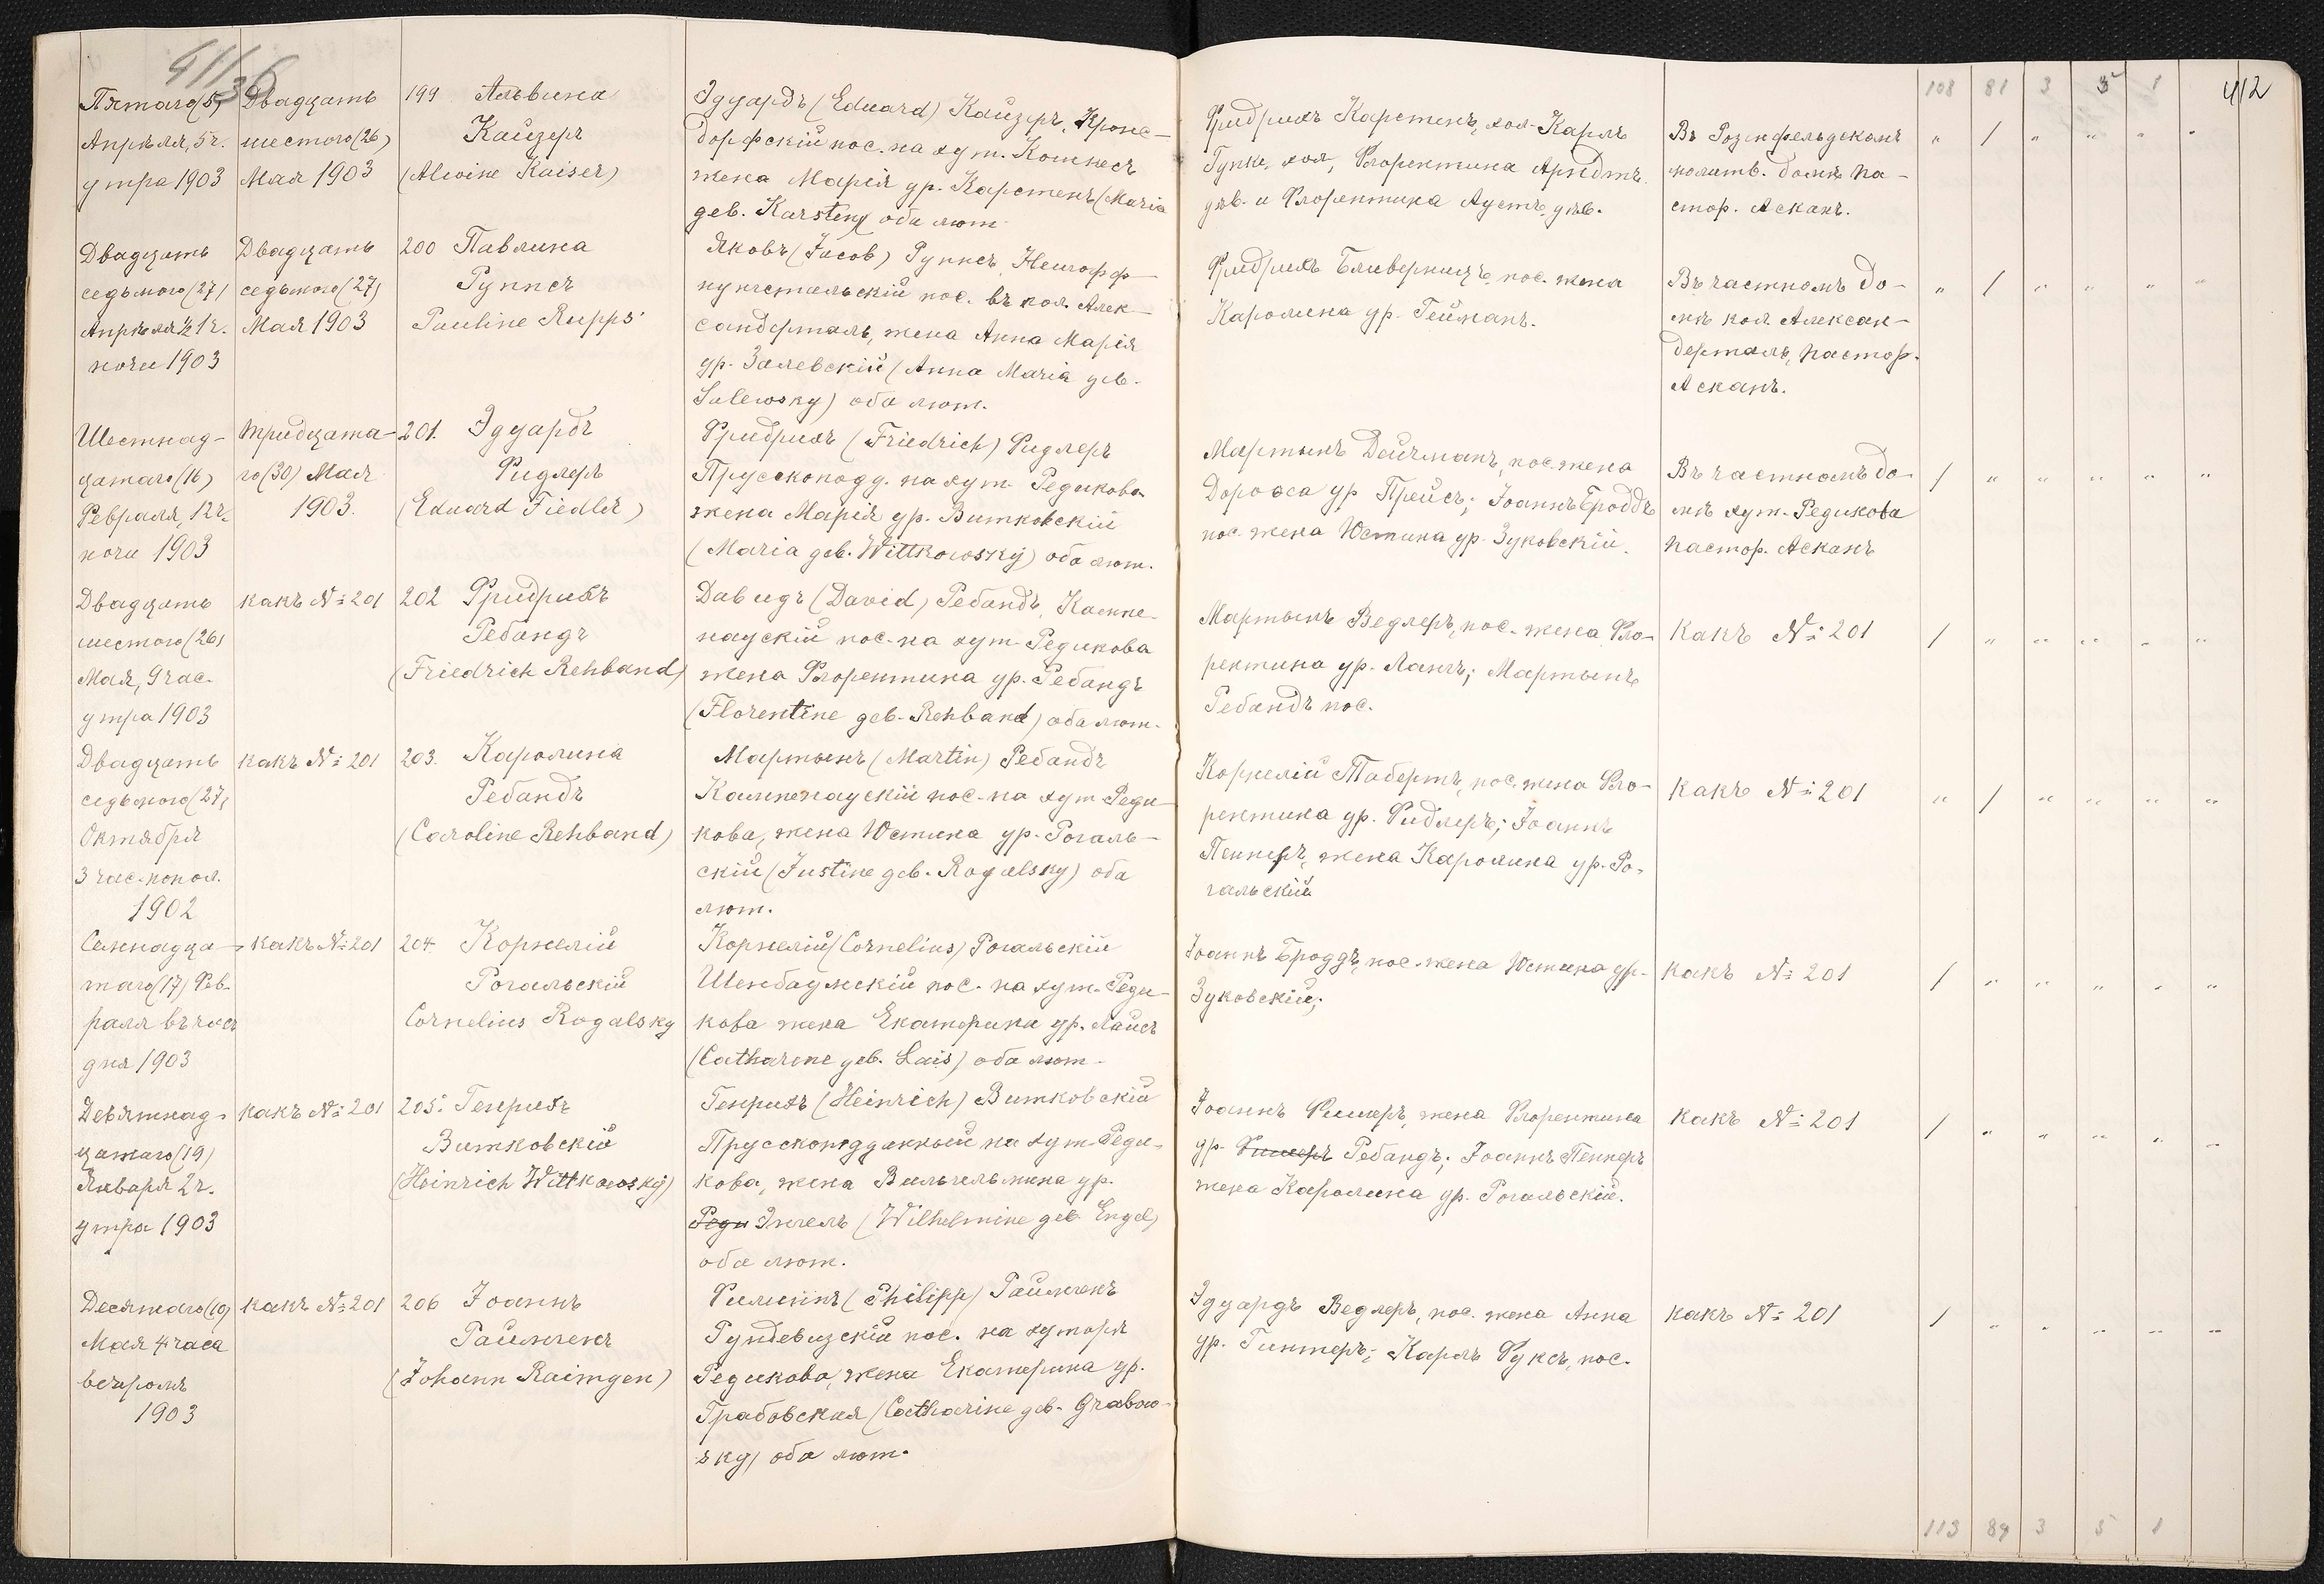 411/36
412
108 81 3 5 1
Пятаго (5)
Апрѣля, 5 ч.
утра 1903
Двадцать
шестого (26)
Мая 1903
199 Альвина
Кайзеръ
(Alwine Kaiser)
Эдуардъ (Eduard) Кайзеръ, Кронс-
дорфскій пос. на хут.
жена Марія ур. Карстенъ (Maria
geb. Karsten) оба лют.
Фридрихъ Карстенъ, кол. Карлъ
кол., Флорентина Арндтъ
дѣв. и Флорентина Аустъ, дѣв.
Въ Розенфельдскомъ
молитв. домѣ па-
стор. Асканъ.
" / " " " "
Двадцать
седьмого (27)
Апрѣля ½ 1 ч.
ночи 1903
Двадцать
седьмого (27)
Мая 1903
200 Павлина
Руппсъ
Pauline Rupps
Яковъ (Jacob) Руппсъ, Нейгофф-
пос. въ кол. Алек-
сандерталь, жена Анна Марія
ур. Залевскій (Anna Maria geb.
Salewsky) оба лют.
Фридрихъ пос. жена
Каролина ур. Гейманъ.
Въ частномъ до-
мѣ кол. Алексан-
дерталь, пастор.
Асканъ.
" / " " " "
Шестнад-
цатаго (16)
Февраля, 12 ч.
ночи 1903
Тридцата-
го (30) Мая
1903.
201. Эдуардъ
Фидлеръ
(Eduard Fiedler)
Фридрихъ (Friedrich) Фидлеръ
Прусскоподд. на хут. Редикова
жена Марія ур. Витковскій
(Maria geb. Wittkowsky) оба лют.
Мартынъ Дейчманъ, пос. жена
ур. Прейсъ; Іоаннъ Броддъ
пос. жена Юстина ур. Зуковскій.
Въ частномъ до-
мѣ хут. Редикова
пастор. Асканъ
/ " " " " "
Двадцать
шестого (26)
Мая, 9 час.
утра 1903
какъ № 201
202 Фридрихъ
Ребандъ
(Friedrich Rehband)
Давидъ (David) Ребандъ, Кампе-
наускій пос. на хут. Редикова
жена Флорентина ур. Ребандъ
(Florentine geb. Rehband) оба лют.
Мартынъ Ведлеръ, пос. жена Фло-
рентина ур. Мартынъ
Ребандъ пос.
какъ № 201
/ " " " " "
Двадцать
седьмого (27)
Октября
3 час. попол.
1902
какъ № 201
203. Каролина
Ребандъ
(Caroline Rehband)
Мартынъ (Martin) Ребандъ
Кампенаускій пос. на хут. Реди-
кова, жена Юстина ур. Рогаль-
скій (Justine geb. Rogalsky) оба
лют.
Корнелій Табертъ, пос. жена Фло-
рентина ур. Фидлеръ; Іоаннъ
Пеннеръ, жена Каролина ур. Ро-
гальскій
какъ № 201
" / " " " "
Семнадца-
таго (17) Фев-
раля въ часъ
дня 1903
какъ № 201
204. Корнелій
Рогальскій
Cornelius Rogalsky
Корнелій (Cornelius) Рогальскій
Шенбаумскій пос. на хут. Реди-
кова жена Екатерина ур. Лайсъ
(Catharine geb. Lais) оба лют.
Іоаннъ Броддъ, пос. жена Юстина ур.
Зуковскій;
какъ № 201
/ " " " " "
Девятнад-
цатаго (19)
Января 2 ч.
утра 1903
какъ № 201
205. Генрихъ
Витковскій
(Heinrich Wittkowsky)
Генрихъ (Heinrich) Витковскій
Прусскоподданный на хут. Реди-
кова, жена Вильгельмина ур.
Реди Энгель (Wilhelmine geb. Engel)
оба лют.
Іоаннъ Фишеръ, жена Флорентина
ур. Фишеръ Ребандъ; Іоаннъ Пеннеръ
жена Каролина ур. Рогальскій.
какъ № 201
/ " " " " "
Десятаго (10)
Мая 4 часа
вечеромъ
1903
какъ № 201
206 Іоаннъ
Раймгенъ
(Johann Raimgen)
Филиппъ (Philipp) Раймгенъ
Рундевизскій пос. на хуторѣ
Редикова, жена Екатерина ур.
Грабовская (Catharine geb. Grabow-
sky) оба лют.
Эдуардъ Ведлеръ, пос. жена Анна
ур. Гинтеръ; Карлъ Фуксъ, пос.
какъ № 201
/ " " " " "
113 84 3 5 1